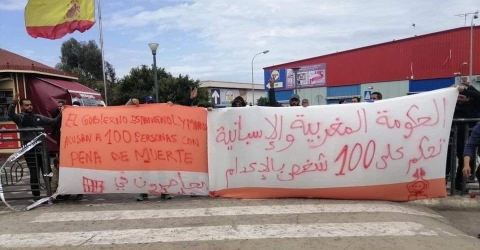 EL GOBIERNO ESPAÑOL Y
ACUSAN A 100 PERSONAS CON
PENA DE MUERTE
محاصرون في
الحكومة المغربية والإسبانية
تحكم على 100 شخص بالإعدام